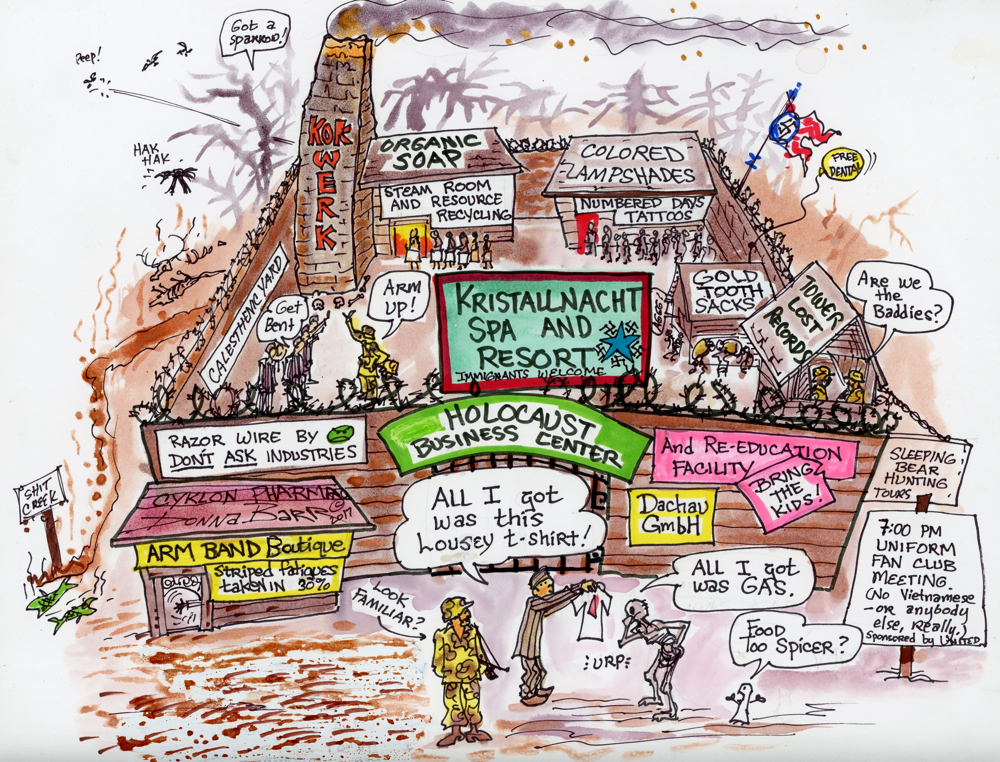 Got a
sparrow!
Peep!
HAK
HAK
KOK
WERK
ORGANIC
SOAP
STEAM ROOM
AND RESOURCE
RECYCLING
COLORED
LAMPSHADES
NUMBERED DAYS
TATTOOS
FREE
DENTAL
CALESTHENIC YARD
Get
Bent!
ARM
UP!
KRISTALLNACHT
SPA AND
RESORT
IMMIGRANTS WELCOME
GOLD
TOOTH
SACKS
TOWER
LOST
RECORDS
ARE we
the
Baddies?
RAZOR WIRE BY
DON'T ASK INDUSTRIES
HOLOCAUST
BUSINESS CENTER
And RE-EDUCATION
FACILITY
BRING
THE
KIDS!
SLEEPING
BEAR
HUNTING
TOURS
SHIT
CREEK
CYKLON PHARMA
Donna Barr © 2017
ARM BAND Boutique
Striped fatigues
taken in 30%
Dachau
GmbH
ALL I got
was this
Lousey t-shirt!
7:00 PM
UNIFORM
FAN CLUB
MEETING.
(No Vietnamese
-or anybody
else, really.)
Sponsored by UNITED
LOOK
FAMILIAR?
ALL I got
was GAS.
:URP:
FOOD
TOO SPICER?